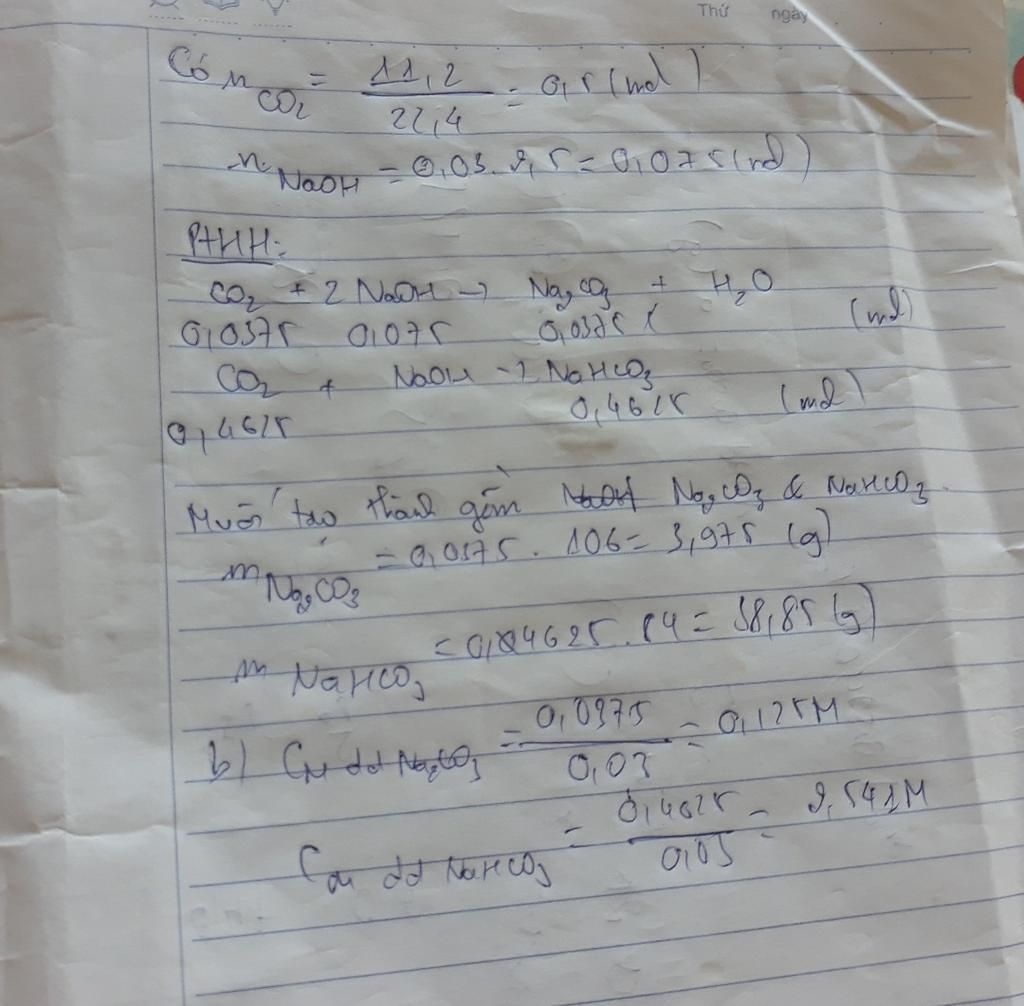 Thứ ngày
Có n CO2 = 11,2 / 22,4 = 0,5 (mol)
n NaOH = 0,03 . 2,5 = 0,075 (mol)
PTHH:
CO2 + 2 NaOH → Na2CO3 + H2O
0,0375 0,075 0,0375 (mol)
CO2 + NaOH → NaHCO3
0,4625 0,4625 (mol)
Muối tạo thành gồm NaOH Na2CO3 & NaHCO3
m Na2CO3 = 0,0375 . 106 = 3,975 (g)
m NaHCO3 = 0,4625 . 84 = 38,85 (g)
b) CM dd Na2CO3 = 0,0375 / 0,03 = 0,125M
CM dd NaHCO3 = 0,4625 / 0,03 = 2,541M